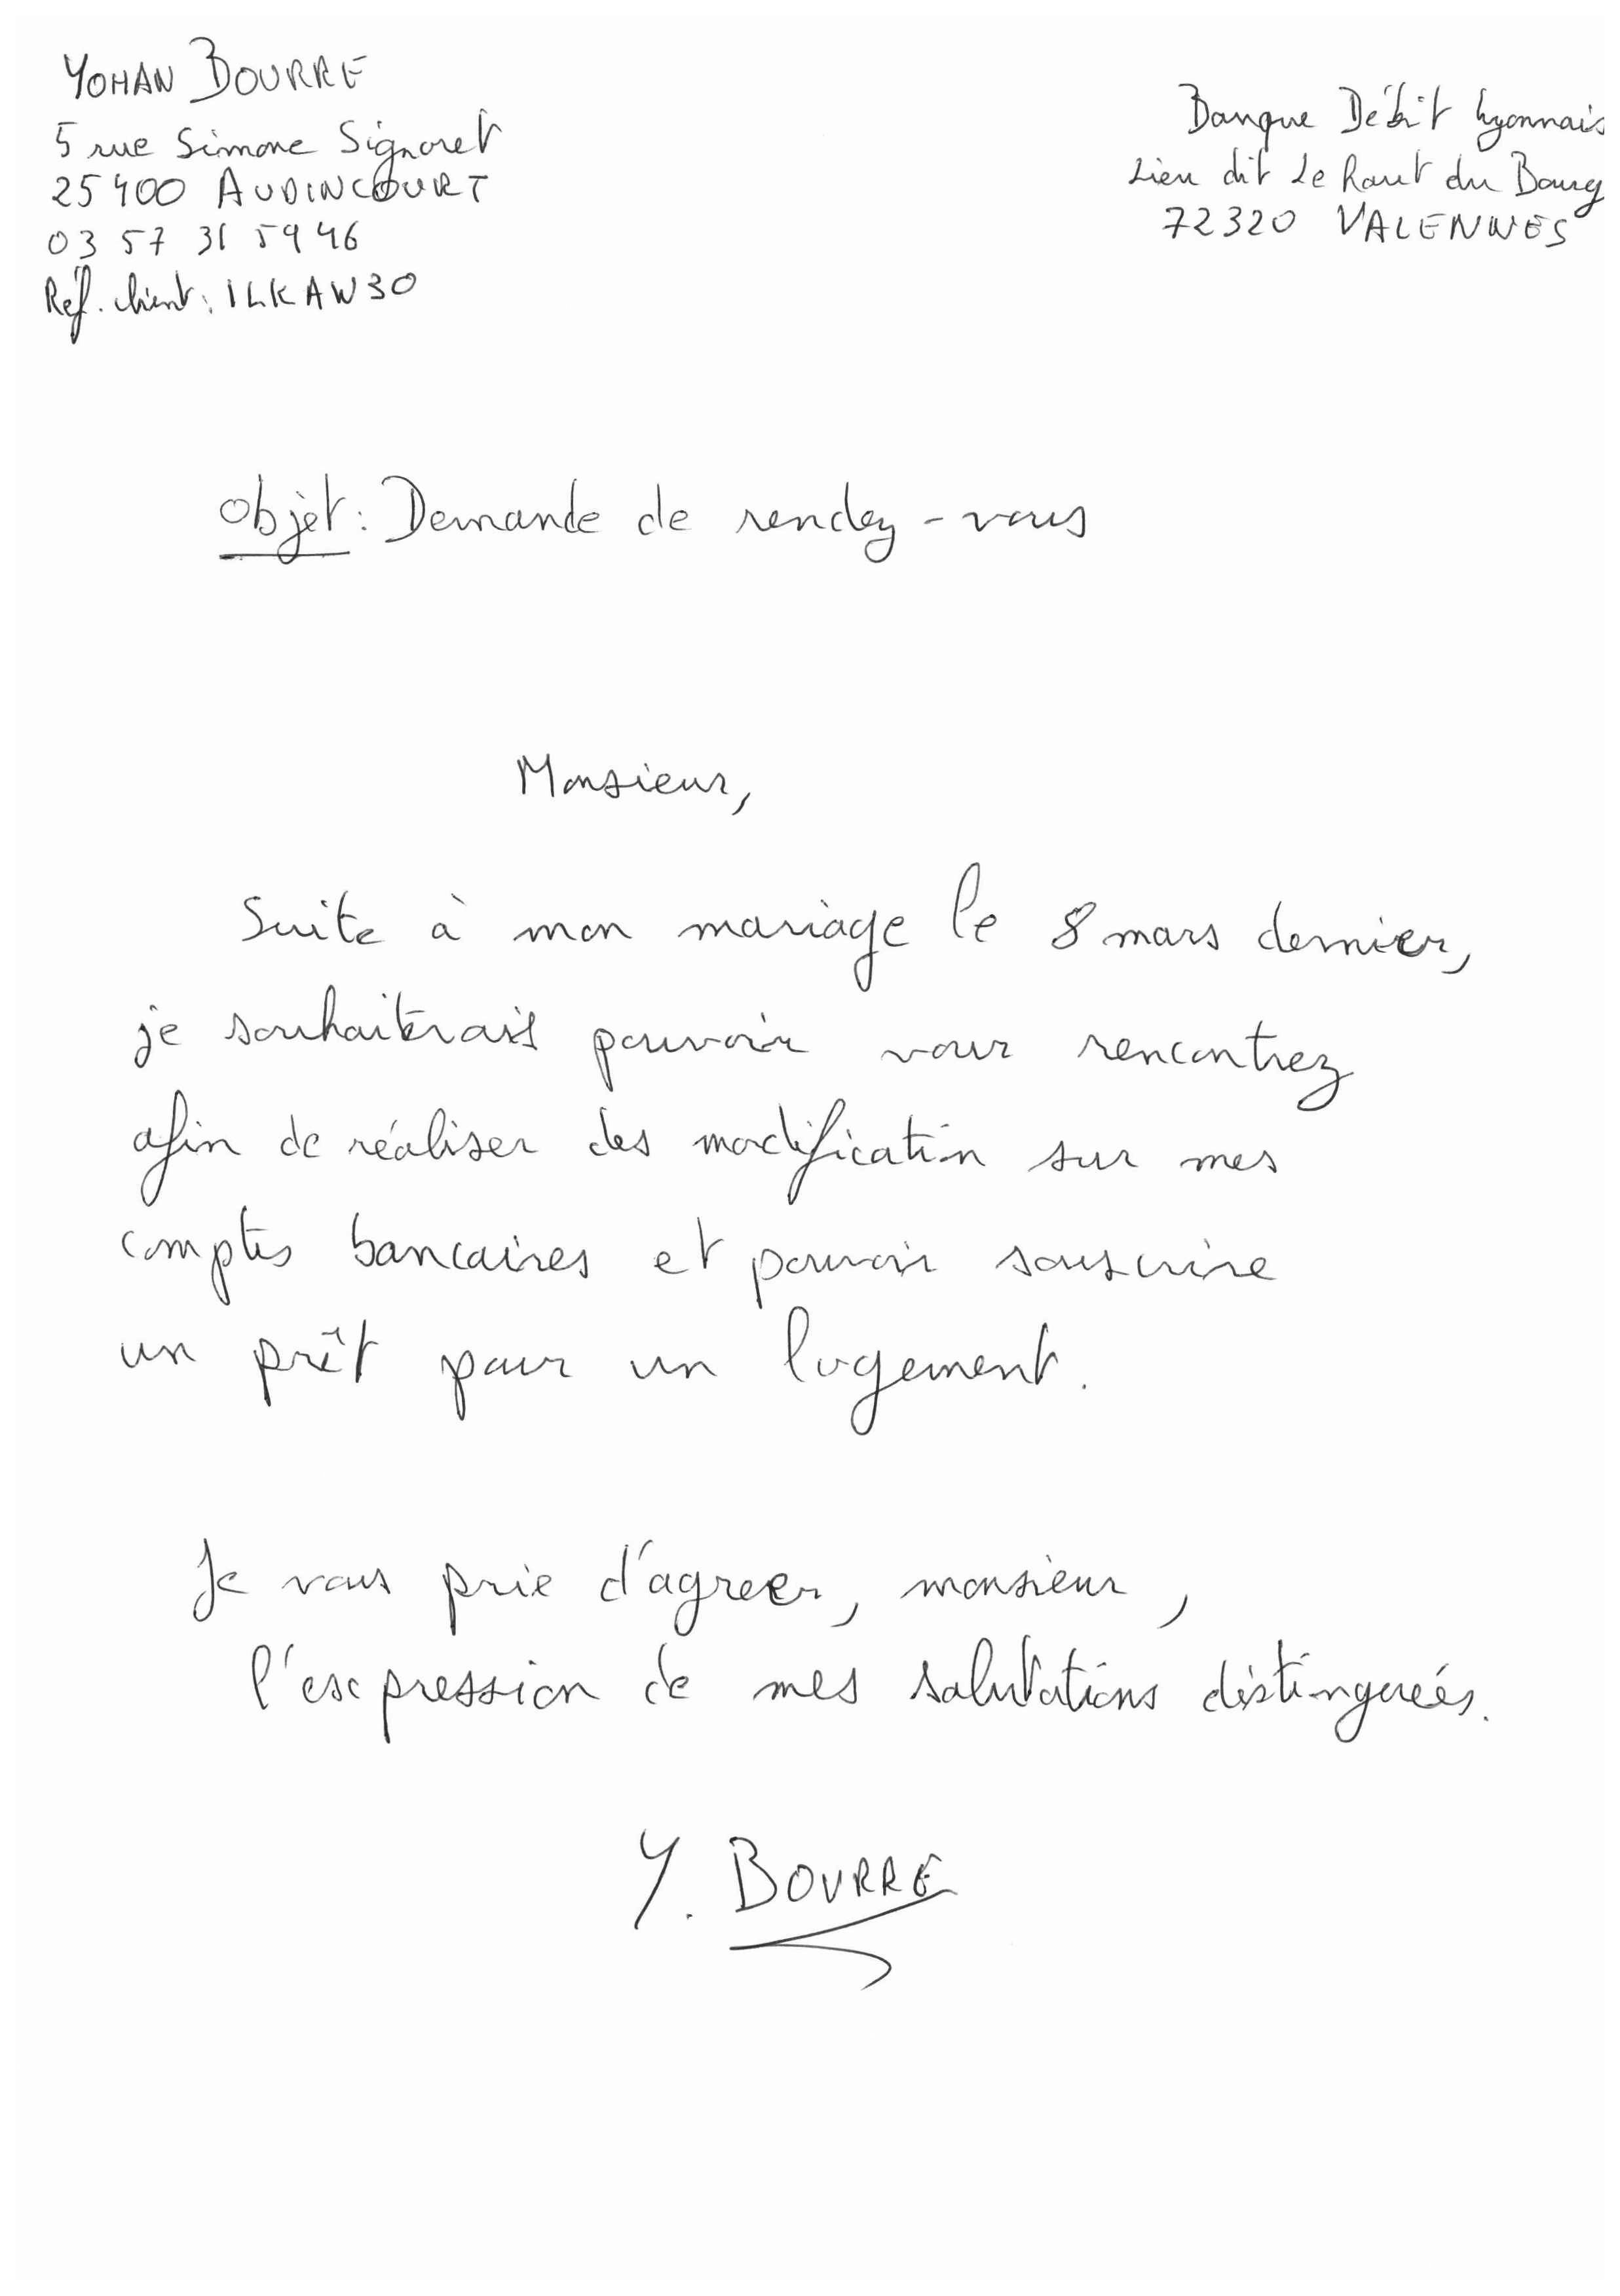 YOHAN BOURRE
5 rue Simone Signoret
25400 AUDINCOURT
03 57 31 59 46
Réf. client : ILKAW30
Banque Débit Lyonnais
Lieu dit Le Haut du Bourg
72320 VALENNES
Objet : Demande de rendez-vous
Monsieur,
Suite à mon mariage le 8 mars dernier,
je souhaiterais pouvoir vous rencontrez
afin de réaliser des modification sur mes
comptes bancaires et pouvoir souscrire
un prêt pour un logement.
Je vous prie d'agreer, monsieur,
l'expression de mes salutations distinguées.
Y. BOURRE